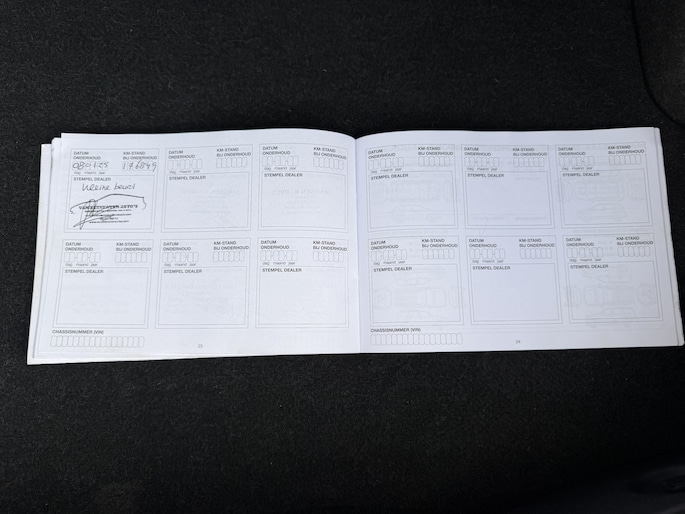 DATUM ONDERHOUD KM-STAND BIJ ONDERHOUD
080125 176849
dag maand jaar
STEMPEL DEALER
kleine beurt
DATUM ONDERHOUD KM-STAND BIJ ONDERHOUD
dag maand jaar
STEMPEL DEALER
DATUM ONDERHOUD KM-STAND BIJ ONDERHOUD
dag maand jaar
STEMPEL DEALER
DATUM ONDERHOUD KM-STAND BIJ ONDERHOUD
dag maand jaar
STEMPEL DEALER
DATUM ONDERHOUD KM-STAND BIJ ONDERHOUD
dag maand jaar
STEMPEL DEALER
DATUM ONDERHOUD KM-STAND BIJ ONDERHOUD
dag maand jaar
STEMPEL DEALER
CHASSISNUMMER (VIN)
23
DATUM ONDERHOUD KM-STAND BIJ ONDERHOUD
dag maand jaar
STEMPEL DEALER
DATUM ONDERHOUD KM-STAND BIJ ONDERHOUD
dag maand jaar
STEMPEL DEALER
DATUM ONDERHOUD KM-STAND BIJ ONDERHOUD
dag maand jaar
STEMPEL DEALER
DATUM ONDERHOUD KM-STAND BIJ ONDERHOUD
dag maand jaar
STEMPEL DEALER
DATUM ONDERHOUD KM-STAND BIJ ONDERHOUD
dag maand jaar
STEMPEL DEALER
DATUM ONDERHOUD KM-STAND BIJ ONDERHOUD
dag maand jaar
STEMPEL DEALER
CHASSISNUMMER (VIN)
24